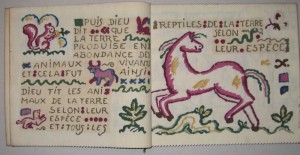 PUIS DIEU
DIT QUE
LA TERRE
PRODUISE EN
ABONDANCE DES
ANIMAUX VIVANTS
ET CELA FUT AINSI ET
DIEU FIT LES ANI
MAUX DE LA TERRE
SELON LEUR
ESPÈCE
ET TOUS LES
REPTILES DE LA TERRE
SELON
LEUR ESPÈCE